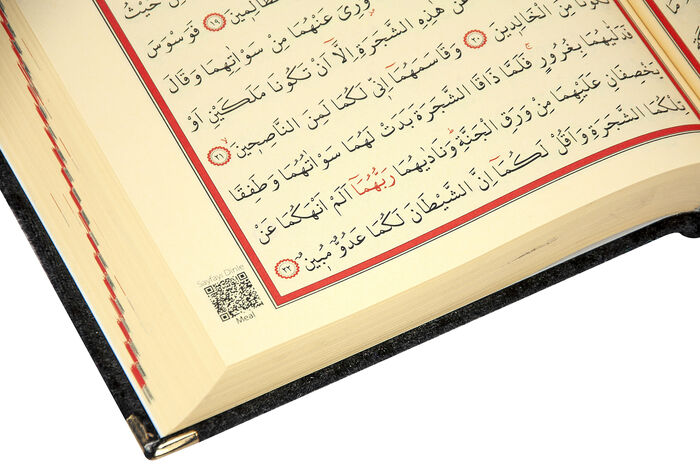 حَيْثُ
الظَّالِمِينَ ١٩ فَوَسْوَسَ
وُرِىَ عَنْهُمَا مِنْ سَوْاٰتِهِمَا وَقَالَ
عَنْ هٰذِهِ الشَّجَرَةِ اِلَّٓا اَنْ تَكُونَا مَلَكَيْنِ اَوْ
تَكُونَا مِنَ الْخَالِدٖينَ ٢٠ وَقَاسَمَهُمَٓا اِنّٖى لَكُمَا لَمِنَ النَّاصِحٖينَ ٢١
فَدَلّٰيهُمَا بِغُرُورٍ فَلَمَّا ذَاقَا الشَّجَرَةَ بَدَتْ لَهُمَا سَوْاٰتُهُمَا وَطَفِقَا
يَخْصِفَانِ عَلَيْهِمَا مِنْ وَرَقِ الْجَنَّةِ وَنَادٰيهُمَا رَبُّهُمَٓا اَلَمْ اَنْهَكُمَا عَنْ
تِلْكُمَا الشَّجَرَةِ وَاَقُلْ لَكُمَٓا اِنَّ الشَّيْطَانَ لَكُمَا عَدُوٌّ مُبٖينٌ ٢٢
Sayfayı Dinle
Meal